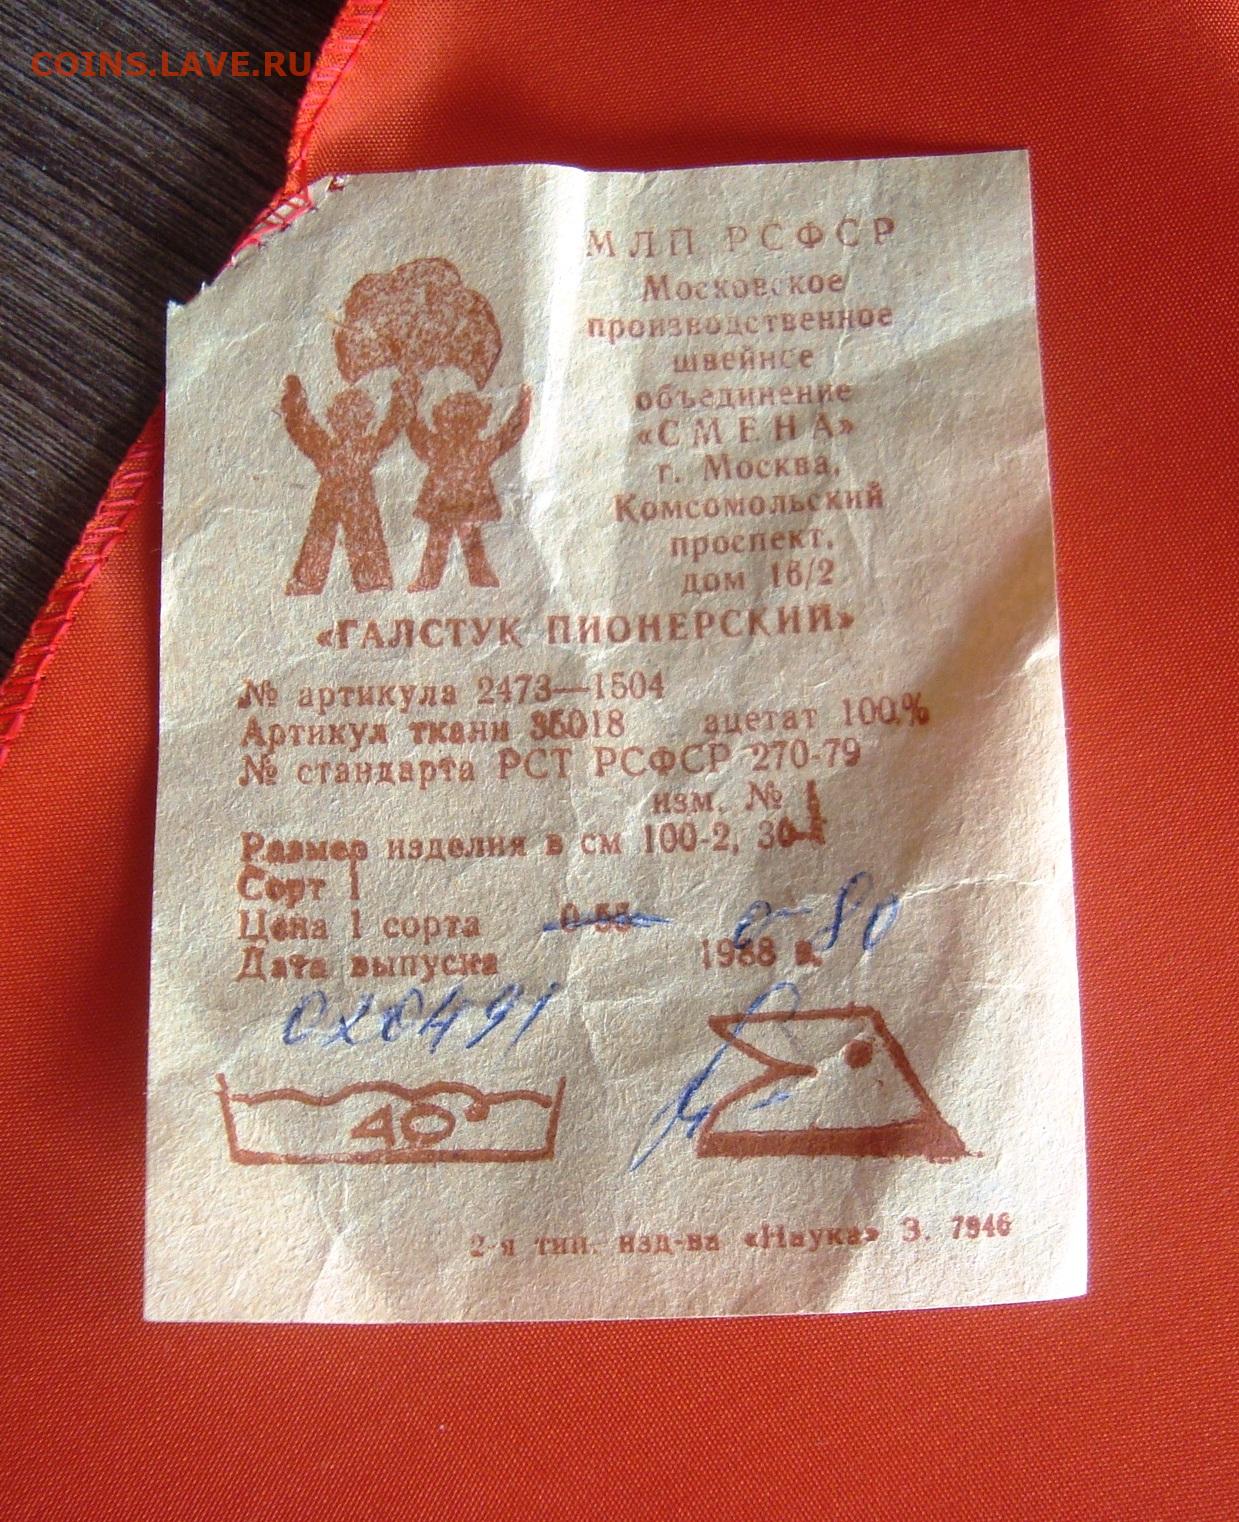 COINS.LAVE.RU
МЛП РСФСР
Московское
производственное
швейное
объединение
«СМЕНА»
г. Москва,
Комсомольский
проспект,
дом 16/2
«ГАЛСТУК ПИОНЕРСКИЙ»
№ артикула 2473—1504
Артикул ткани 35018 ацетат 100%
№ стандарта РСТ РСФСР 270-79
изм. № 1
Размер изделия в см 100-2, 30-1
Сорт 1
Цена 1 сорта 0-55 0-80
Дата выпуска 1988 г.
40
2-я тип. изд-ва «Наука» З. 7946